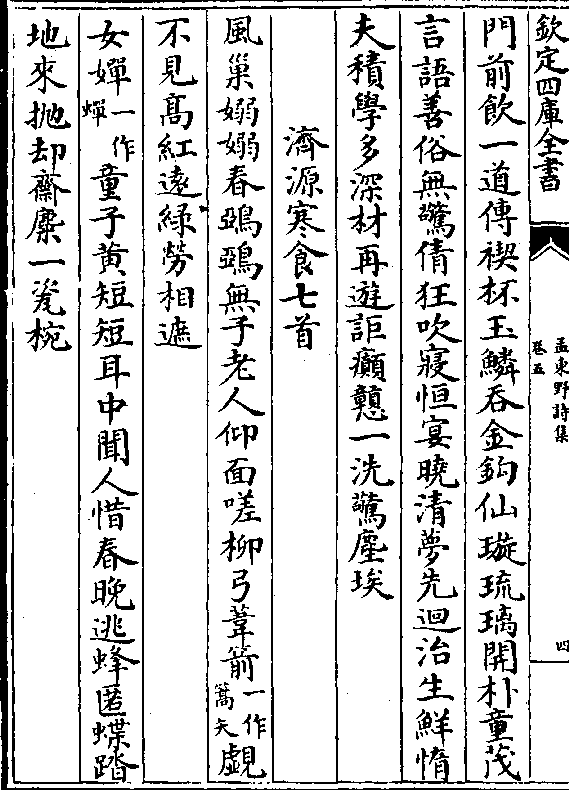 欽定四庫全書
孟東野詩集
卷五
四
門前飲一道傳禊杯玉鱗吞金鈎仙璇琉璃開朴童茂
言語善俗無驚倩狂吹寢恒宴曉清夢先迴治生鮮惰
夫積學多深材再遊詎癲戇一洗驚塵埃
濟源寒食七首
風巢嫋嫋春鵶鵶無子老人仰面嗟柳弓葦箭一作蒿矢覷
不見高紅遠綠勞相遮
女嬋一作蟬童子黃短短耳中聞人惜春晚逃蜂匿蝶踏
地來拋却齋麋一瓷椀